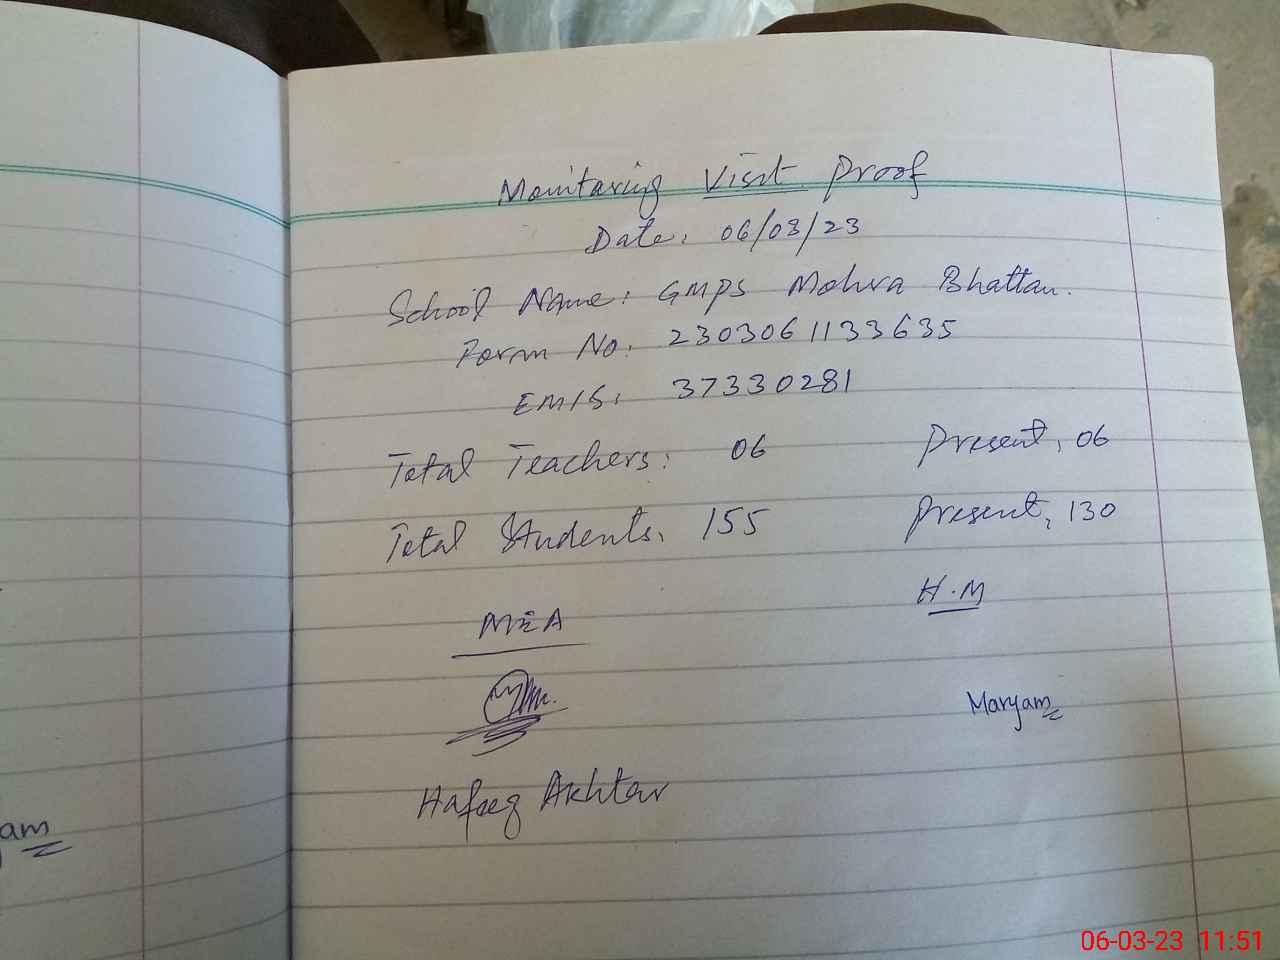 Monitoring Visit Proof
Date: 06/03/23
School Name: GMPS Mohra Bhattan.
Form No. 2303061133635
EMIS: 37330281
Total Teachers: 06 Present, 06
Total Students, 155 Present, 130
MEA H.M
Maryam
Hafeez Akhtar
am
06-03-23 11:51